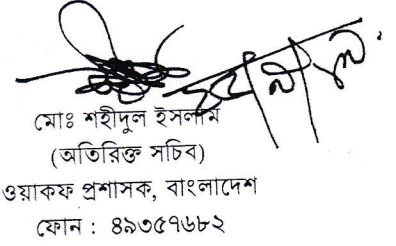 মোঃ শহীদুল ইসলাম
(অতিরিক্ত সচিব)
ওয়াকফ প্রশাসক, বাংলাদেশ
ফোন : ৪৯৩৫৭৬৮২